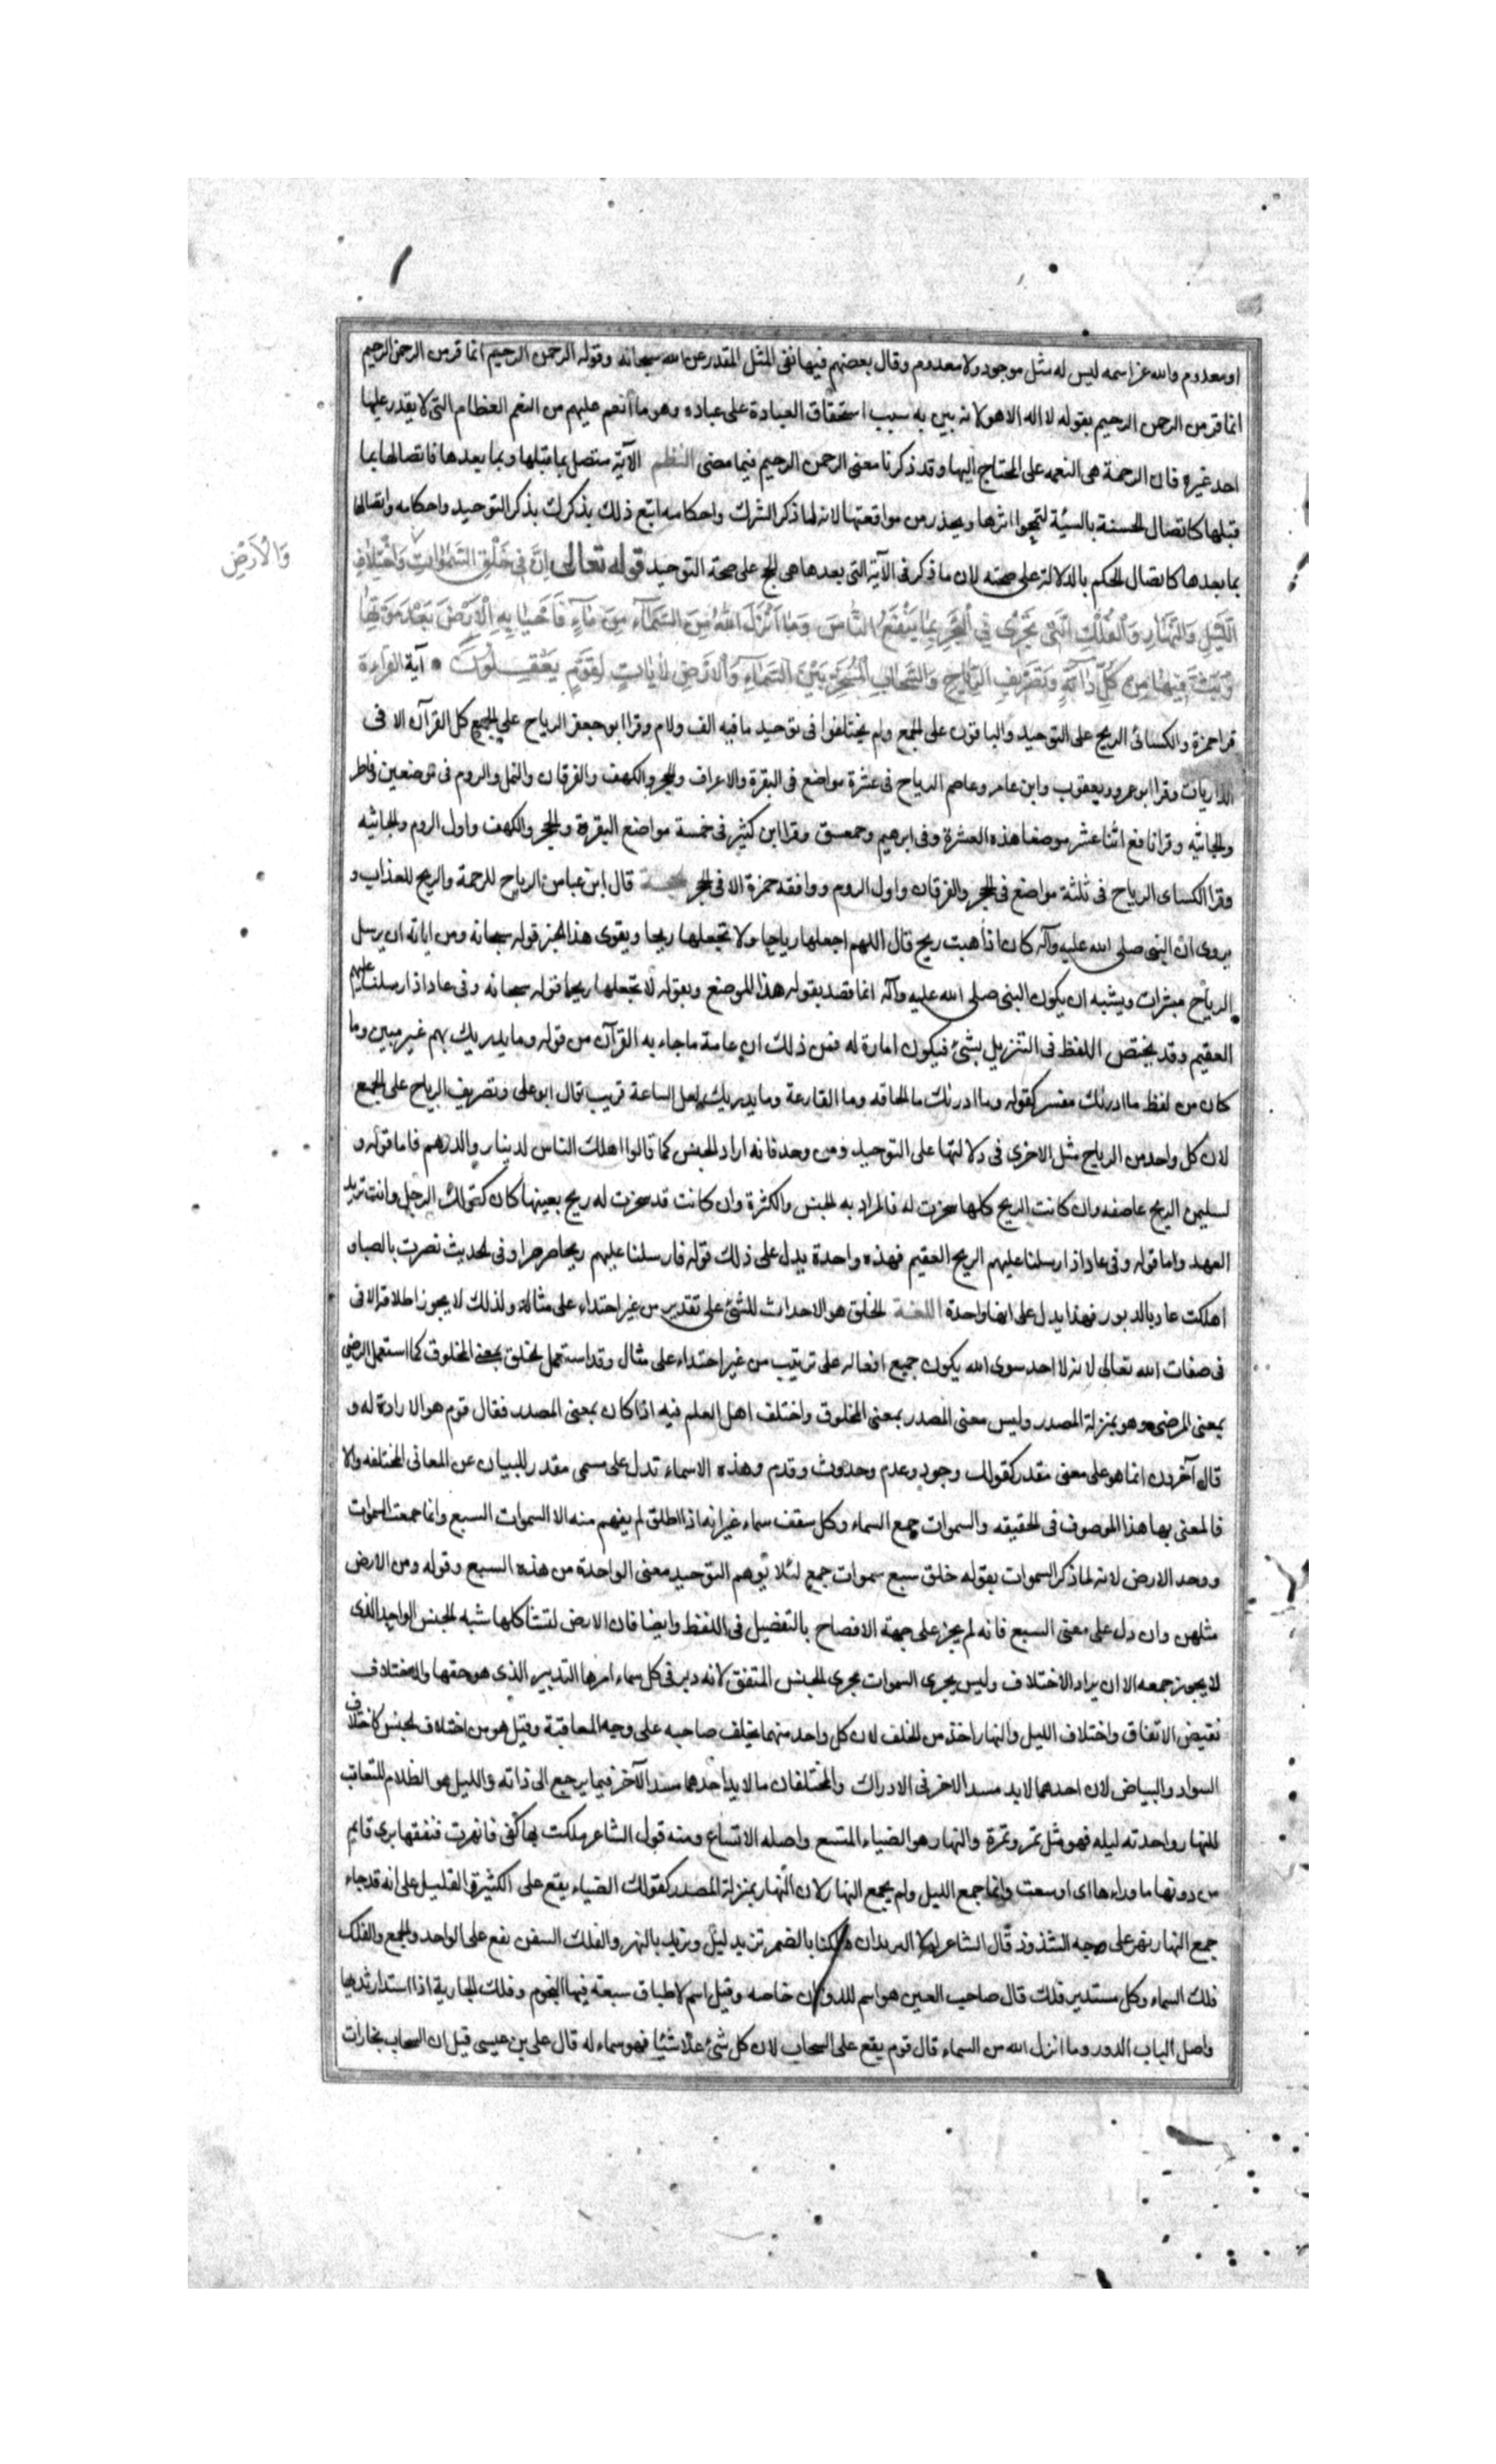 او معدوم والله عز اسمه ليس له مثل موجود ولا معدوم وقال بعضهم فيها نفى المثل المقدر عن الله سبحانه وقوله الرحمن الرحيم انما قرن الرحمن الرحيم
انما قرن الرحمن الرحيم بقوله لا اله الا هو لانه بين به سبب استحقاق العبادة على عباده وهو ما أنعم عليهم من النعم العظام التى لا يقدر عليها
احد غيره فان الرحمة هى النعمه على المحتاج اليها وقد ذكرنا معنى الرحمن الرحيم فيما مضى النظم الآية متصل بما قبلها وبما بعدها فاتصالها بما
قبلها كاتصال الحسنة بالسيئة لتمحوا اثرها ويحذر من مواقعتها لانه لما ذكر الشرك واحكامه اتبع ذلك بذكرك بذكر التوحيد واحكامه واتصالها
بما بعدها كاتصال الحكم بالدلالة على صحته لان ما ذكر فى الآية التى بعدها هى الحج على صحة التوحيد قوله تعالى اِنَّ فى خَلْقِ السَّمٰوٰاتِ وَاخْتِلٰافِ
وَالْاَرْضِ
الَّيْلِ وَالنَّهٰارِ وَالْفُلْكِ الَّتى تَجْرى فِي الْبَحْرِ بِمٰا يَنْفَعُ النّٰاسَ وَمٰا اَنْزَلَ اللهُ مِنَ السَّمٰآءِ مِنْ مٰآءٍ فَاَحْيٰا بِهِ الْاَرْضَ بَعْدَ مَوْتِهٰا
وَبَثَّ فيهٰا مِنْ كُلِّ دٰآبَّةٍ وَتَصْريفِ الرِّيٰاحِ وَالسَّحٰابِ الْمُسَخَّرِ بَيْنَ السَّمٰآءِ وَالْاَرْضِ لَاٰيٰاتٍ لِقَوْمٍ يَعْقِلُونَ آية القراءة
قرا حمزة والكسائى الريح على التوحيد والباقون على الجمع ولم يختلفوا فى توحيد ما فيه الف ولام وقرا ابو جعفر الرياح على الجمع كل القرآن الا فى
الذاريات وقرا ابو عمرو ويعقوب وابن عامر وعاصم الرياح فى عشرة مواضع فى البقرة والاعراف والحجر والكهف والفرقان والنمل والروم فى موضعين وفاطر
والجاثيه وقرا نافع اثنا عشر موضعا هذه العشرة وفى ابرهيم وحمعسق وقرا ابن كثير فى خمسة مواضع البقرة والحجر والكهف واول الروم والجاثيه
وقرا الكساى الرياح فى ثلثة مواضع فى الحجر والفرقان واول الروم ووافقه حمزة الا فى الحجر الحجة قال ابن عباس الرياح للرحمة والريح للعذاب و
يروى ان النبى صلى الله عليه وآله كان اذا هبت ريح قال اللهم اجعلها رياحا ولا تجعلها ريحا ويقوى هذا الخبر قوله سبحانه ومن اياته ان يرسل
الرياح مبشرات ويشبه ان يكون النبى صلى الله عليه وآله انما قصد بقوله هذا الموضع وبقوله لا تجعلها ريحا قوله سبحانه وفى عاد اذ ارسلنا عليهم
العقيم وقد يختص اللفظ فى التنزيل بشئ فيكون امارة له فمن ذلك ان عامة ما جاء به القرآن من قوله وما يدريك بهم غير مبين وما
كان من لفظ ما ادرىك مفسر كقوله وما ادرىك ما الحاقه وما القارعة وما يدريك لعل الساعة قريب قال ابو على وتصريف الرياح على الجمع
لان كل واحد من الرياح مثل الاخرى فى دلالتها على التوحيد ومن وحد فانه اراد الجنس كما قالوا اهلك الناس لدينار والدرهم فاما قوله و
لسليمن الريح عاصفه وان كانت الريح كلها سخرت له فالمراد به الجنس والكثرة وان كانت قد سخرت له ريح بعينها كان كقولك الرجل وانت تريد
العهد واما قوله وفى عاد اذ ارسلنا عليهم الريح العقيم فهذه واحدة يدل على ذلك قوله فارسلنا عليهم ريحا صرصرا وفى الحديث نصرت بالصبا و
اهلكت عاد بالدبور فهذا يدل على انها واحدة اللغة الخلق هو الاحداث للشئ على تقدير من غير احتذاء على مثاله ولذلك لا يجوز اطلاقه الا فى
فى صفات الله تعالى لانه لا احد سوى الله يكون جميع افعاله على ترتيب من غير احتذاء على مثال وقد استعمل الخلق بمعنى المخلوق كما استعمل الرضى
بمعنى المرضى وهو بمنزلة المصدر وليس معنى المصدر بمعنى المخلوق واختلف اهل العلم فيه اذا كان بمعنى المصدر فقال قوم هو الارادة له و
قال آخرون انما هو على معنى مقدر كقولك وجود وعدم وحدوث وقدم وهذه الاسماء تدل على مسمى مقدر للبيان عن المعانى المختلفه والا
فالمعنى بها هذا الموصوف فى الحقيقه والسموات جمع السماء وكل سقف سماء غير انه اذا اطلق لم يفهم منه الا السموات السبع وانما جمعت السموات
ووحد الارض لانه لما ذكر السموات بقوله خلق سبع سموات جمع لئلا يوهم التوحيد معنى الواحدة من هذه السبع وقوله ومن الارض
مثلهن وان دل على معنى السبع فانه لم يجر على جهة الافصاح بالتفضيل فى اللفظ وايضا فان الارض لتشاكلها شبه الجنس الواحد الذى
لا يجوز جمعه الا ان يراد الاختلاف وليس يجرى السموات مجرى الجنس المتفق لانه دبر فى كل سماء امرها التدبير الذى هو حقها والاختلاف
نقيض الاتفاق واختلاف الليل والنهار اخذ من الخلف لان كل واحد منهما يخلف صاحبه على وجه المعاقبة وقيل هو من اختلاف الجنس كاختلاف
السواد والبياض لان احدهما لا يسد مسد الاخر فى الادراك والمختلفان ما لا يسد احدهما مسد الآخر فيما يرجع الى ذاته والليل هو الظلام المتعاقب
للنهار واحدته ليله فهو مثل تمر وتمرة والنهار هو الضياء المتسع واصله الاتساع ومنه قول الشاعر ملكت بها كفى فانهرت فتقها يرى قايم
من دونها ما وراءها اى اوسعت وانما جمع الليل ولم يجمع النهار لان النهار بمنزلة المصدر كقولك الضياء يقع على الكثير والقليل على انه قد جاء
جمع النهار نهر على وجه الشذوذ قال الشاعر لولا الثريدان هلكنا بالضمر ثريد ليل وثريد بالنهر والفلك السفن يقع على الواحد والجمع والفلك
فلك السماء وكل مستدير فلك قال صاحب العين هو اسم للدوران خاصه وقيل اسم لاطباق سبعة فيها النجوم وفلكت الجارية اذا استدار ثديها
واصل الباب الدور وما انزل الله من السماء قال قوم يقع على السحاب لان كل شئ علا شيئا فهو سماء له قال على بن عيسى قيل ان السحاب بخارات